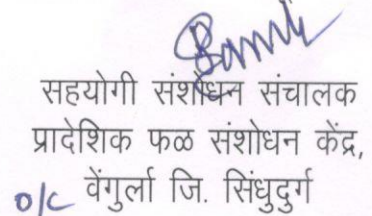 सहयोगी संशोधन संचालक
प्रादेशिक फळ संशोधन केंद्र,
o/c वेंगुर्ला जि. सिंधुदुर्ग